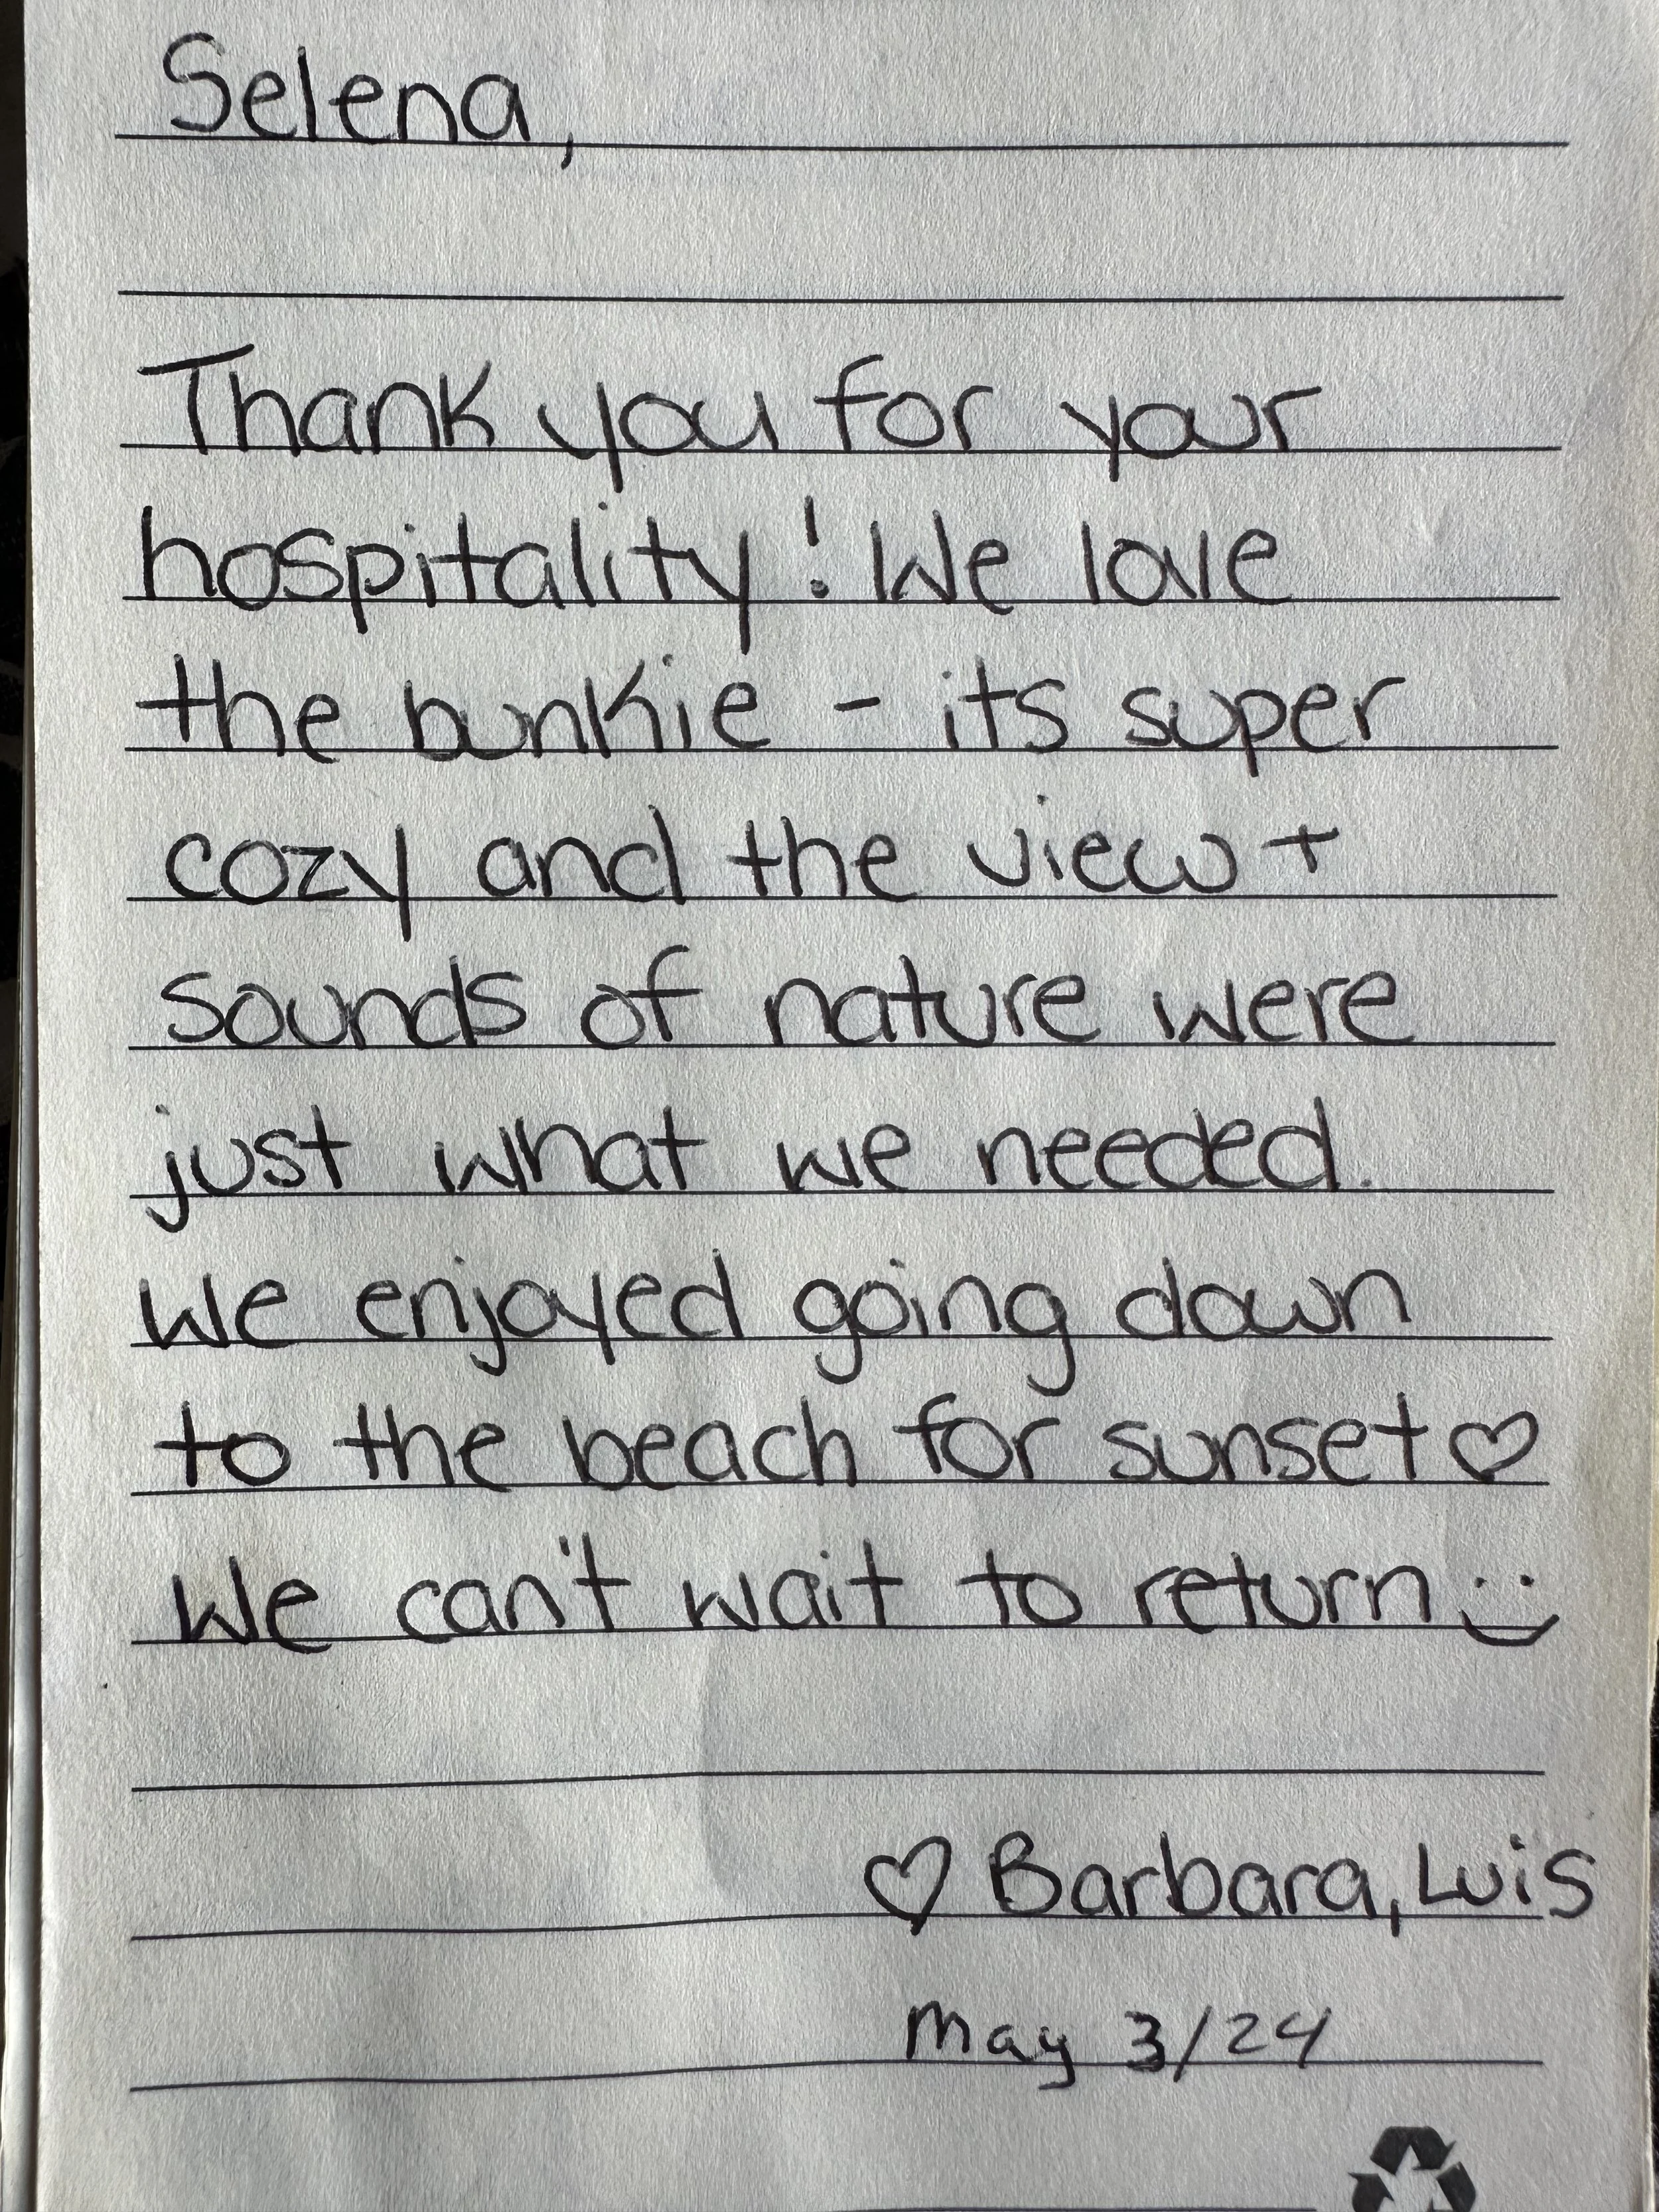 Selena,
Thank you for your
hospitality! We love
the bunkie - its super
cozy and the view +
sounds of nature were
just what we needed.
We enjoyed going down
to the beach for sunset ♡
We can't wait to return :)
♡ Barbara, Luis
May 3/24